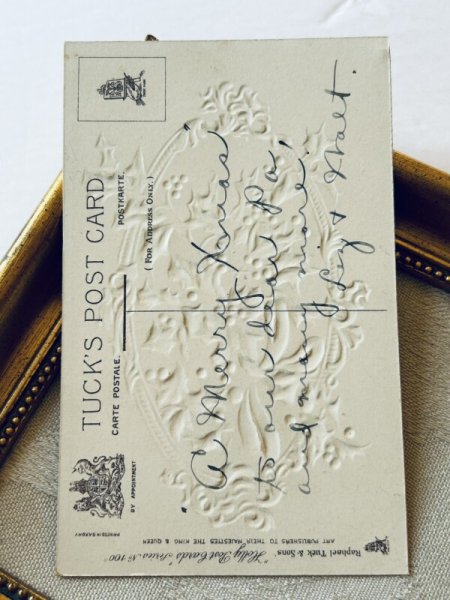 TUCK'S POST CARD
CARTE POSTALE. POSTKARTE.
( FOR ADDRESS ONLY. )
BY APPOINTMENT
PRINTED IN SAXONY
Raphael Tuck & Sons'
"Holly Post Cards" Series No 100
ART PUBLISHERS TO THEIR MAJESTIES THE KING & QUEEN
"A Merry Xmas"
to our dear Pa
and many more,
Liz & Walt.